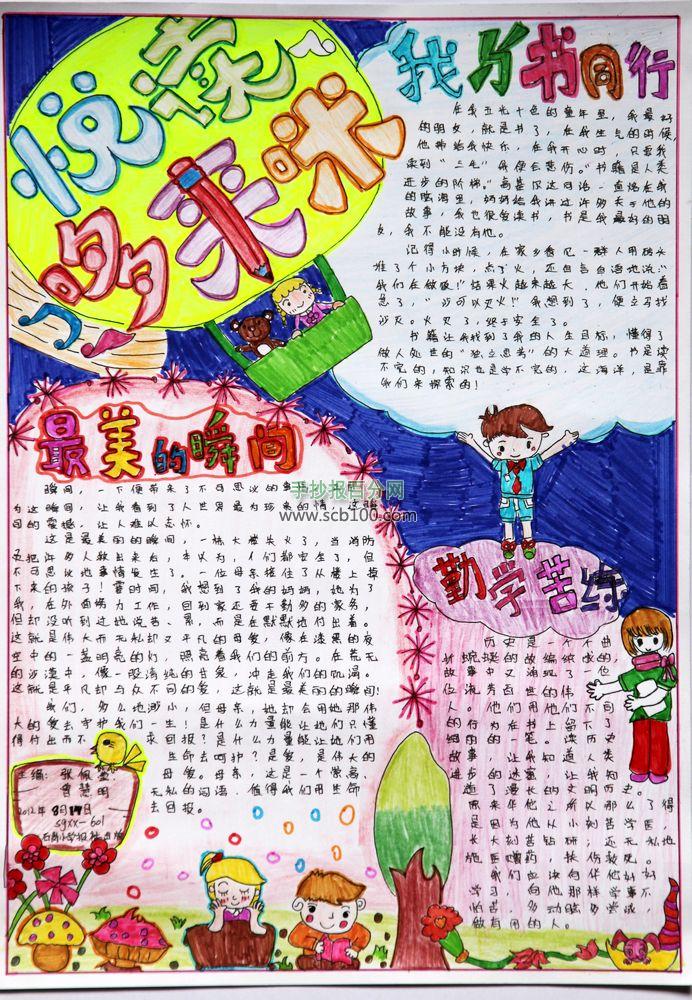 悦读
多来咪
我与书同行
在我五光十色的童年里，我最好
的朋友，就是书了，在我生气的时候，
他带给我快乐，在我开心时，只要我
来到“三毛”我便会悲伤。“书籍是人类
进步的阶梯”高基仅这句话一直烙在我
的脑海里，妈妈给我讲过许多关于他的
故事，我也很爱读书，书是我最好的朋
友，我不能没有他。
记得小时候，在家乡看见一群人用砖头
堆了个小方块，点了火，还自言自语地说：“
我们在做饭！”结果火越来越大，他们开始着
急了，“沙可以灭火！”我想到了，便立马找
沙灭。火灭了，终于安全了。
书籍让我找到了我的人生目标，懂得了
做人处世的“独立思考”的大道理。书是读
不完的，知识也是学不完的，这海洋，是靠
我们来探索的！
最美的瞬间
瞬间，一下便带来了不可思议的
为这瞬间，让我看到了人世界最为珍来的情，这瞬
间的震撼，让人难以忘怀。
这是最美丽的瞬间，一栋大楼失火了，当消防
五把许多人救出来后，本以为，人们都安全了，但
不可思议地事情发生了。一位母亲接住了从楼上掉
下来的孩子！霎时间，我想到了我的妈妈，她为了
我，在外面努力工作，回到家还要干勤多的家务，
但却没听到过她说苦、累，而是在默默地付出着。
这就是伟大而无私却又平凡的母爱，像在漆黑的夜
空中的一盏明亮的灯，照亮着我们的前方。在荒无
的沙漠中，像一股清纯的甘泉，冲走我们的饥渴。
这就是平凡却与众不同的爱，这就是最美丽的瞬间！
我们，多么地渺小，但母亲，她却会用她那伟
大的爱去守护我们一生！是什么力量能让她们只懂
得付出而不求回报？是什么力量能让她们用
生命去呵护？是爱，是伟大的
母爱。母亲，这是一个崇高、
无私的词语，值得我们用生命
去回报。
勤学苦练
历史是一个个曲
故事中又涵现了一位
位流芳百世的伟
人。他们用他们不同
的行为在书上留下了
的一笔。读历史
故事，让我知道人类
进步的迷窟，让我知
道了漫长的文明历史。
原来华佗之所以那么了得
是因为他从小刻苦学医，
长大刻苦钻研，还无私地
施医赠药，扶伤救死。
我们也该向华佗好好
学习，向他那样学事不
怕苦，多动脑多尝试，
做有用的人。
主编：张佩莹
曾慧明
2012年9月14日
手抄报百分网
www.scb100.com